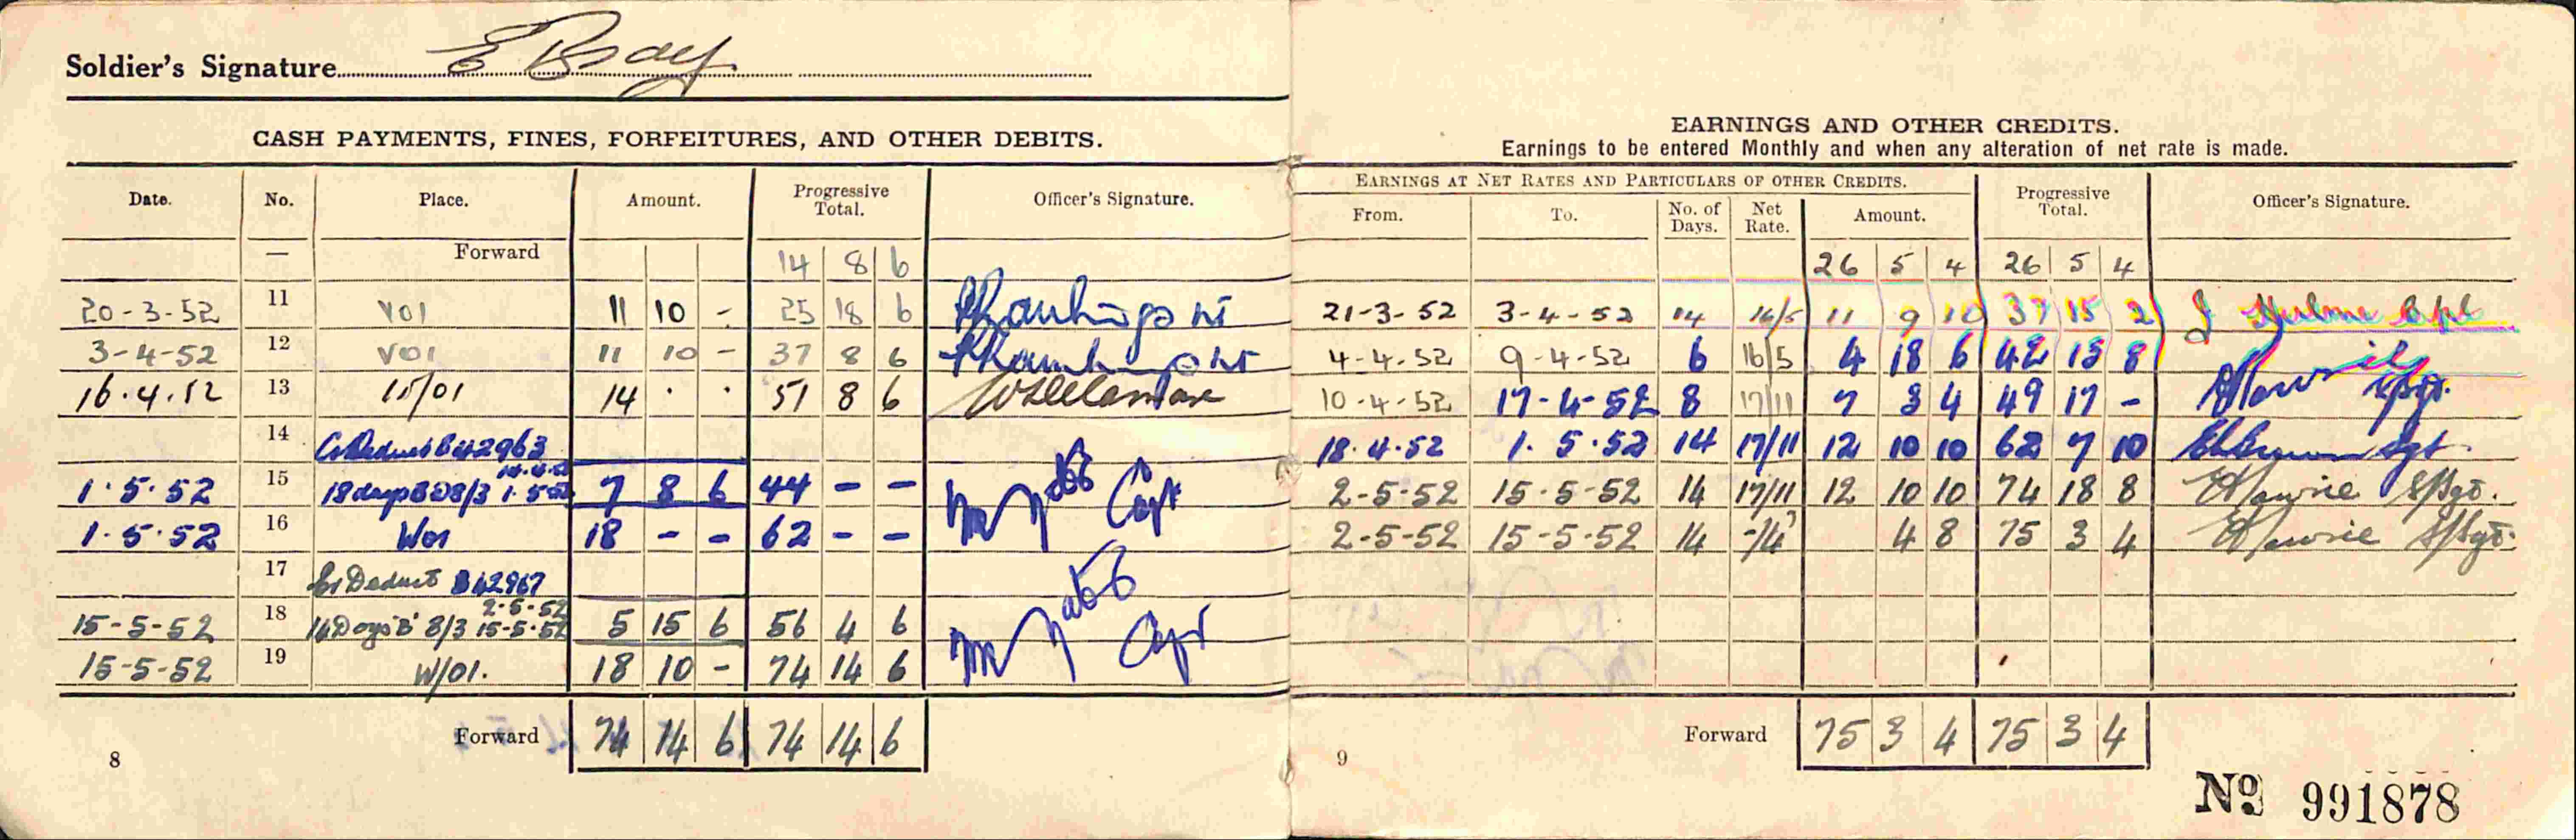 Soldier's Signature E Bray
CASH PAYMENTS, FINES, FORFEITURES, AND OTHER DEBITS.
Date. No. Place. Amount. Progressive Total. Officer's Signature.
— Forward 14 8 6
20-3-52 11 V01 11 10 - 25 18 6
3-4-52 12 V01 11 10 - 37 8 6
16.4.52 13 14 . . 51 8 6
14 Cr Deduct B42963
1.5.52 15 18 days B 8/3 1.5.52 7 8 6 44 - -
Capt
1.5.52 16 W01 18 - - 62 - -
17 Cr Deduct B42967
2-5-52
15-5-52 18 14 Days 'B' 8/3 15-5-52 5 15 6 56 4 6
Capt
15-5-52 19 W/01. 18 10 - 74 14 6
Forward 74 14 6 74 14 6
8
EARNINGS AND OTHER CREDITS.
Earnings to be entered Monthly and when any alteration of net rate is made.
EARNINGS AT NET RATES AND PARTICULARS OF OTHER CREDITS. Progressive Total. Officer's Signature.
From. To. No. of Days. Net Rate. Amount.
26 5 4 26 5 4
21-3-52 3-4-52 14 16/5 11 9 10 37 15 2 J Hulme Cpl
4-4-52 9-4-52 6 16/5 4 18 6 42 13 8
10-4-52 17-4-52 8 17/11 7 3 4 49 17 - S/Sgt.
18.4.52 1.5.52 14 17/11 12 10 10 62 7 10 Sgt
2-5-52 15-5-52 14 17/11 12 10 10 74 18 8 S/Sgt.
2-5-52 15-5-52 14 -/4 4 8 75 3 4 S/Sgt.
Forward 75 3 4 75 3 4
9
No 991878